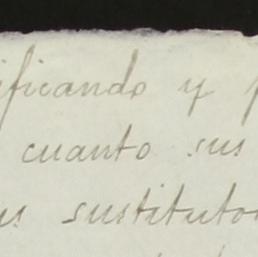 ificando y
cuanto sus
us sustituto